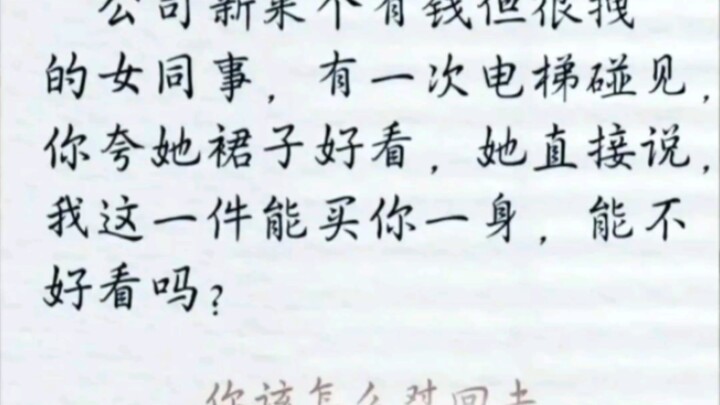 公司新来个有钱但很拽
的女同事，有一次电梯碰见，
你夸她裙子好看，她直接说，
我这一件能买你一身，能不
好看吗？
你该怎么怼回去